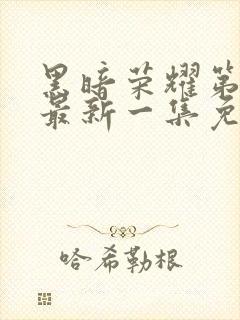 黑暗荣耀第
最新一集免
哈希勒根